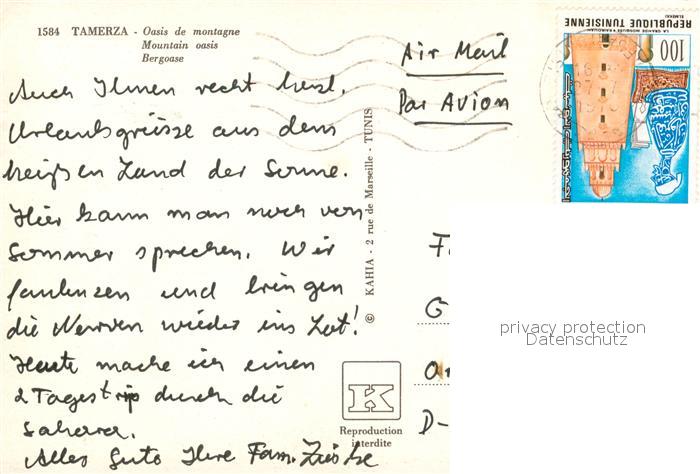 1584 TAMERZA - Oasis de montagne
Mountain oasis
Bergoase
Air Mail
Par Avion
REPUBLIQUE TUNISIENNE
LA GRANDE MOSQUEE KAIROUAN
ELMEKKI
100
Auch Ihnen recht herzl.
Urlaubsgrüsse aus dem
heißen Land der Sonne.
Hier kann man noch von
Sommer sprechen. Wir
faulenzen und bringen
die Nerven wieder ins Lot!
Heute mache ich einen
2 Tagestrip durch die
Sahara.
Alles Gute Ihre Fam.
© KAHIA - 2 rue de Marseille - TUNIS
F
G
D-
K
Reproduction
interdite
privacy protection
Datenschutz